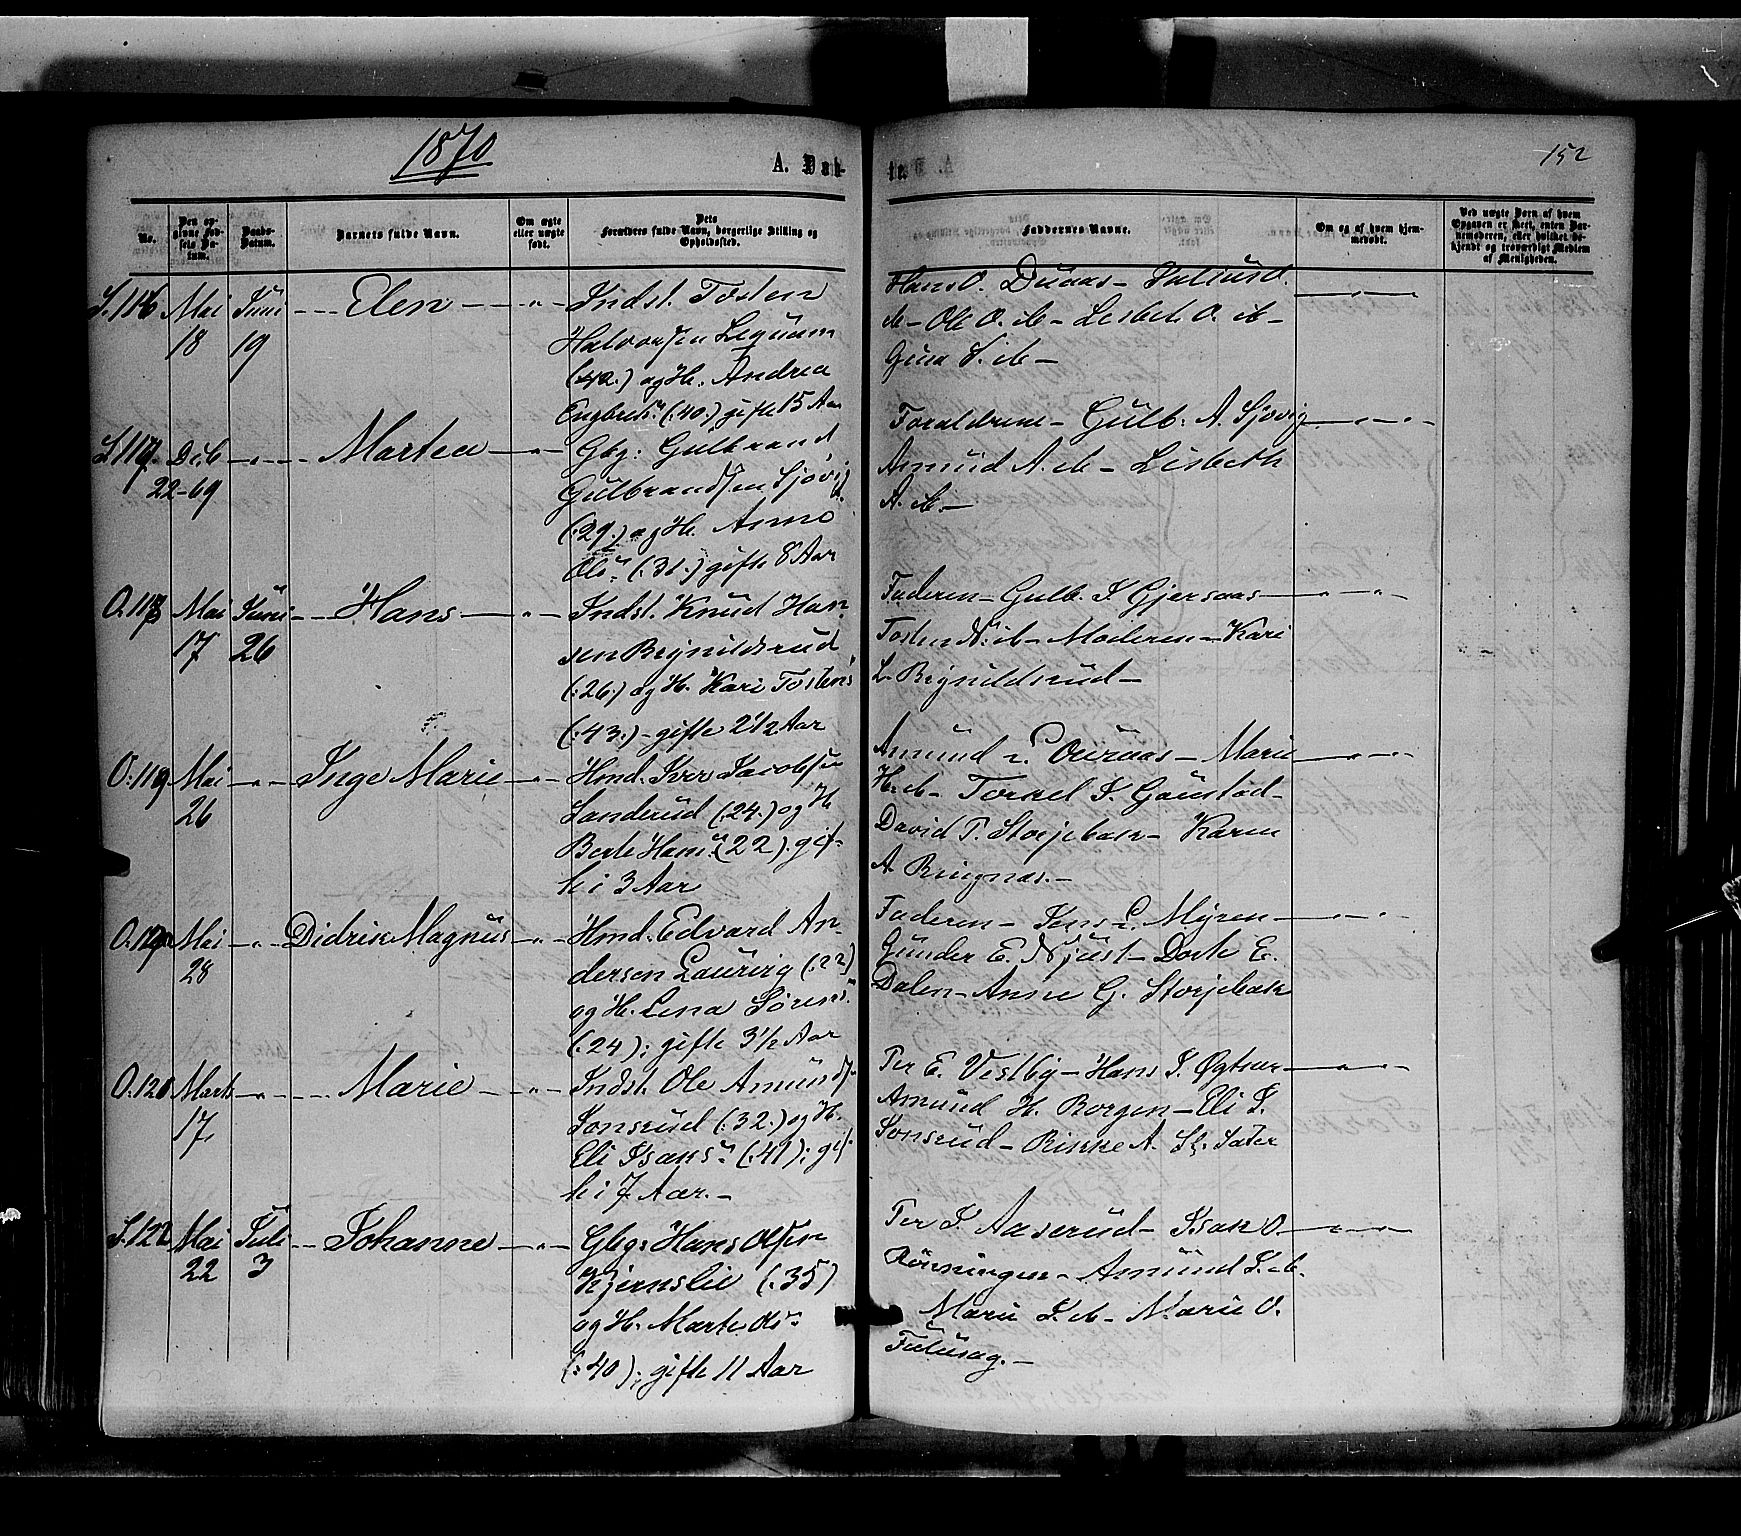 1870
A. Døb-
te.
152
No.
Den op-
givne Fød-
sels Da-
tum.
Daabs-
Datum.
Barnets fulde Navn.
Om ægte
eller uægte
født.
Dets
Forældres fulde Navn, borgerlige Stilling og
Opholdssted.
Faddernes Navne.
Om og af hvem hjem-
medøbt.
Ved uægte Børn af hvem
Opgaven er skeet, enten Bar-
nemoderen, eller hvilket be-
kjendt og troværdigt Medlem
af Menigheden.
S. 116 Mai 18 Juni 19 Elen
Indst. Tosten
Halvorsen
(42.) og H. Andrea
Engbrets. (:40.) gifte 15 Aar
Hans O.
ib- Ole O. ib- Lisbet O. ib-
S. ib-
S. 117. Dcb 22-69 Martea
Gbg: Gulbrand
Gulbrandsen Sjøvig
(:29.) og H. Anne
Ols. (:31.) gifte 8 Aar
Foraldrene- Gulb. A. Sjøvig
Amund A. ib- Lisbeth
A. ib-
O. 118 Mai 17 Juni 26 Hans
Indst. Knud Han-
sen
(:26.) og H. Kari Tostens
(:43.)- gifte 2 1/2 Aar
Faderen- Gulb. I Gjersaas
Tosten N. ib- Moderen- Kari
L.
O. 119 Mai 26 Inge Marie
Hmd. Iver Jacobsen
Sanderud (:24.) og H
Berte Hans. (22): gif-
te i 3 Aar
Amund L. - Marie
H. ib- Torkel I. Gaustad-
David P. Storjebak- Karen
A. Ringnæs.-
O. 120 Mai 28 Didrik Magnus
Hmd. Edvard An-
dersen Laurvig (:22)
og H. Lena Sörens.
(:24); gifte 3 1/2 Aar
Faderen- Jens L. Myren-
Gunder E. - Dorte E.
Dalen- Anne G. Storjebak
O. 121 Marts 17. Marie
Indst. Ole Amunds.
Jonsrud (:32.) og H.
Eli Isaks. (:41); gif-
te i 7 Aar.-
Per E. Vestby- Hans I.
Amund H. Borgen- Eli I.
Jonsrud- Rikke A.
S. 122 Mai 22 Juli 3 Johanne
Gbg: Hans Olsen
Kjernslie (:35)
og H. Marte ds.
(:40); gifte 11 Aar
Per I. Aaserud- Isak O.
Rönningen- Amund I. ib.
Marie I. ib- Marie O.